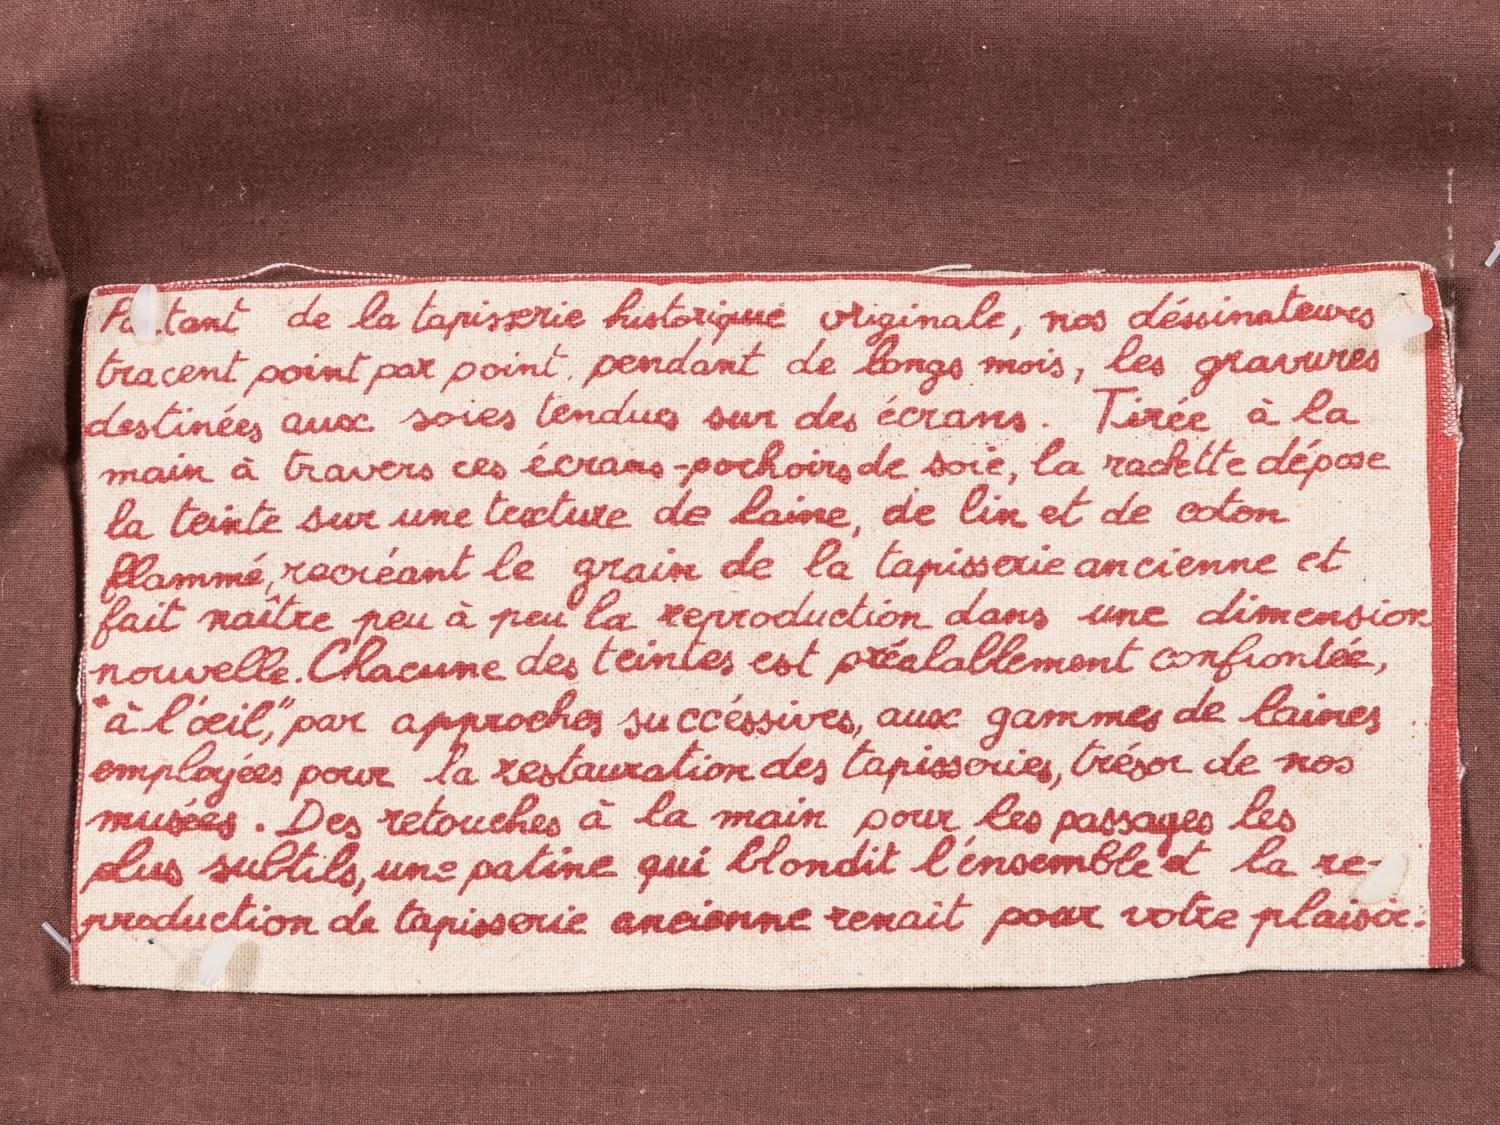 Partant de la tapisserie historique originale, nos déssinateurs
tracent point par point, pendant de longs mois, les gravures
destinées aux soies tendues sur des écrans. Tirée à la
main à travers ces écrans-pochoirs de soie, la raclette dépose
la teinte sur une texture de laine, de lin et de coton
flammé, recréant le grain de la tapisserie ancienne et
fait naître peu à peu la reproduction dans une dimension
nouvelle. Chacune des teintes est préalablement confrontée,
"à l'œil," par approches succéssives, aux gammes de laines
employées pour la restauration des tapisseries, trésor de nos
musées. Des retouches à la main pour les passages les
plus subtils, une patine qui blondit l'énsemble et la re-
production de tapisserie ancienne renait pour votre plaisir.